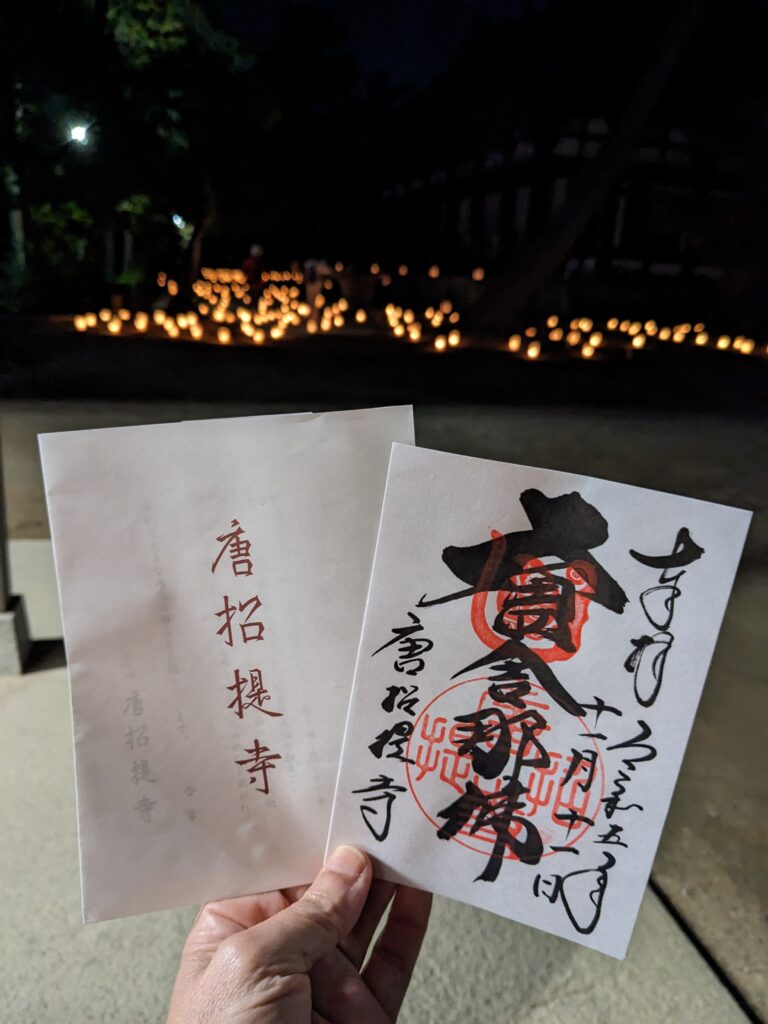 唐招提寺
唐招提寺
奉拝
令和五年
十一月十一日
盧舎那佛
唐招提寺